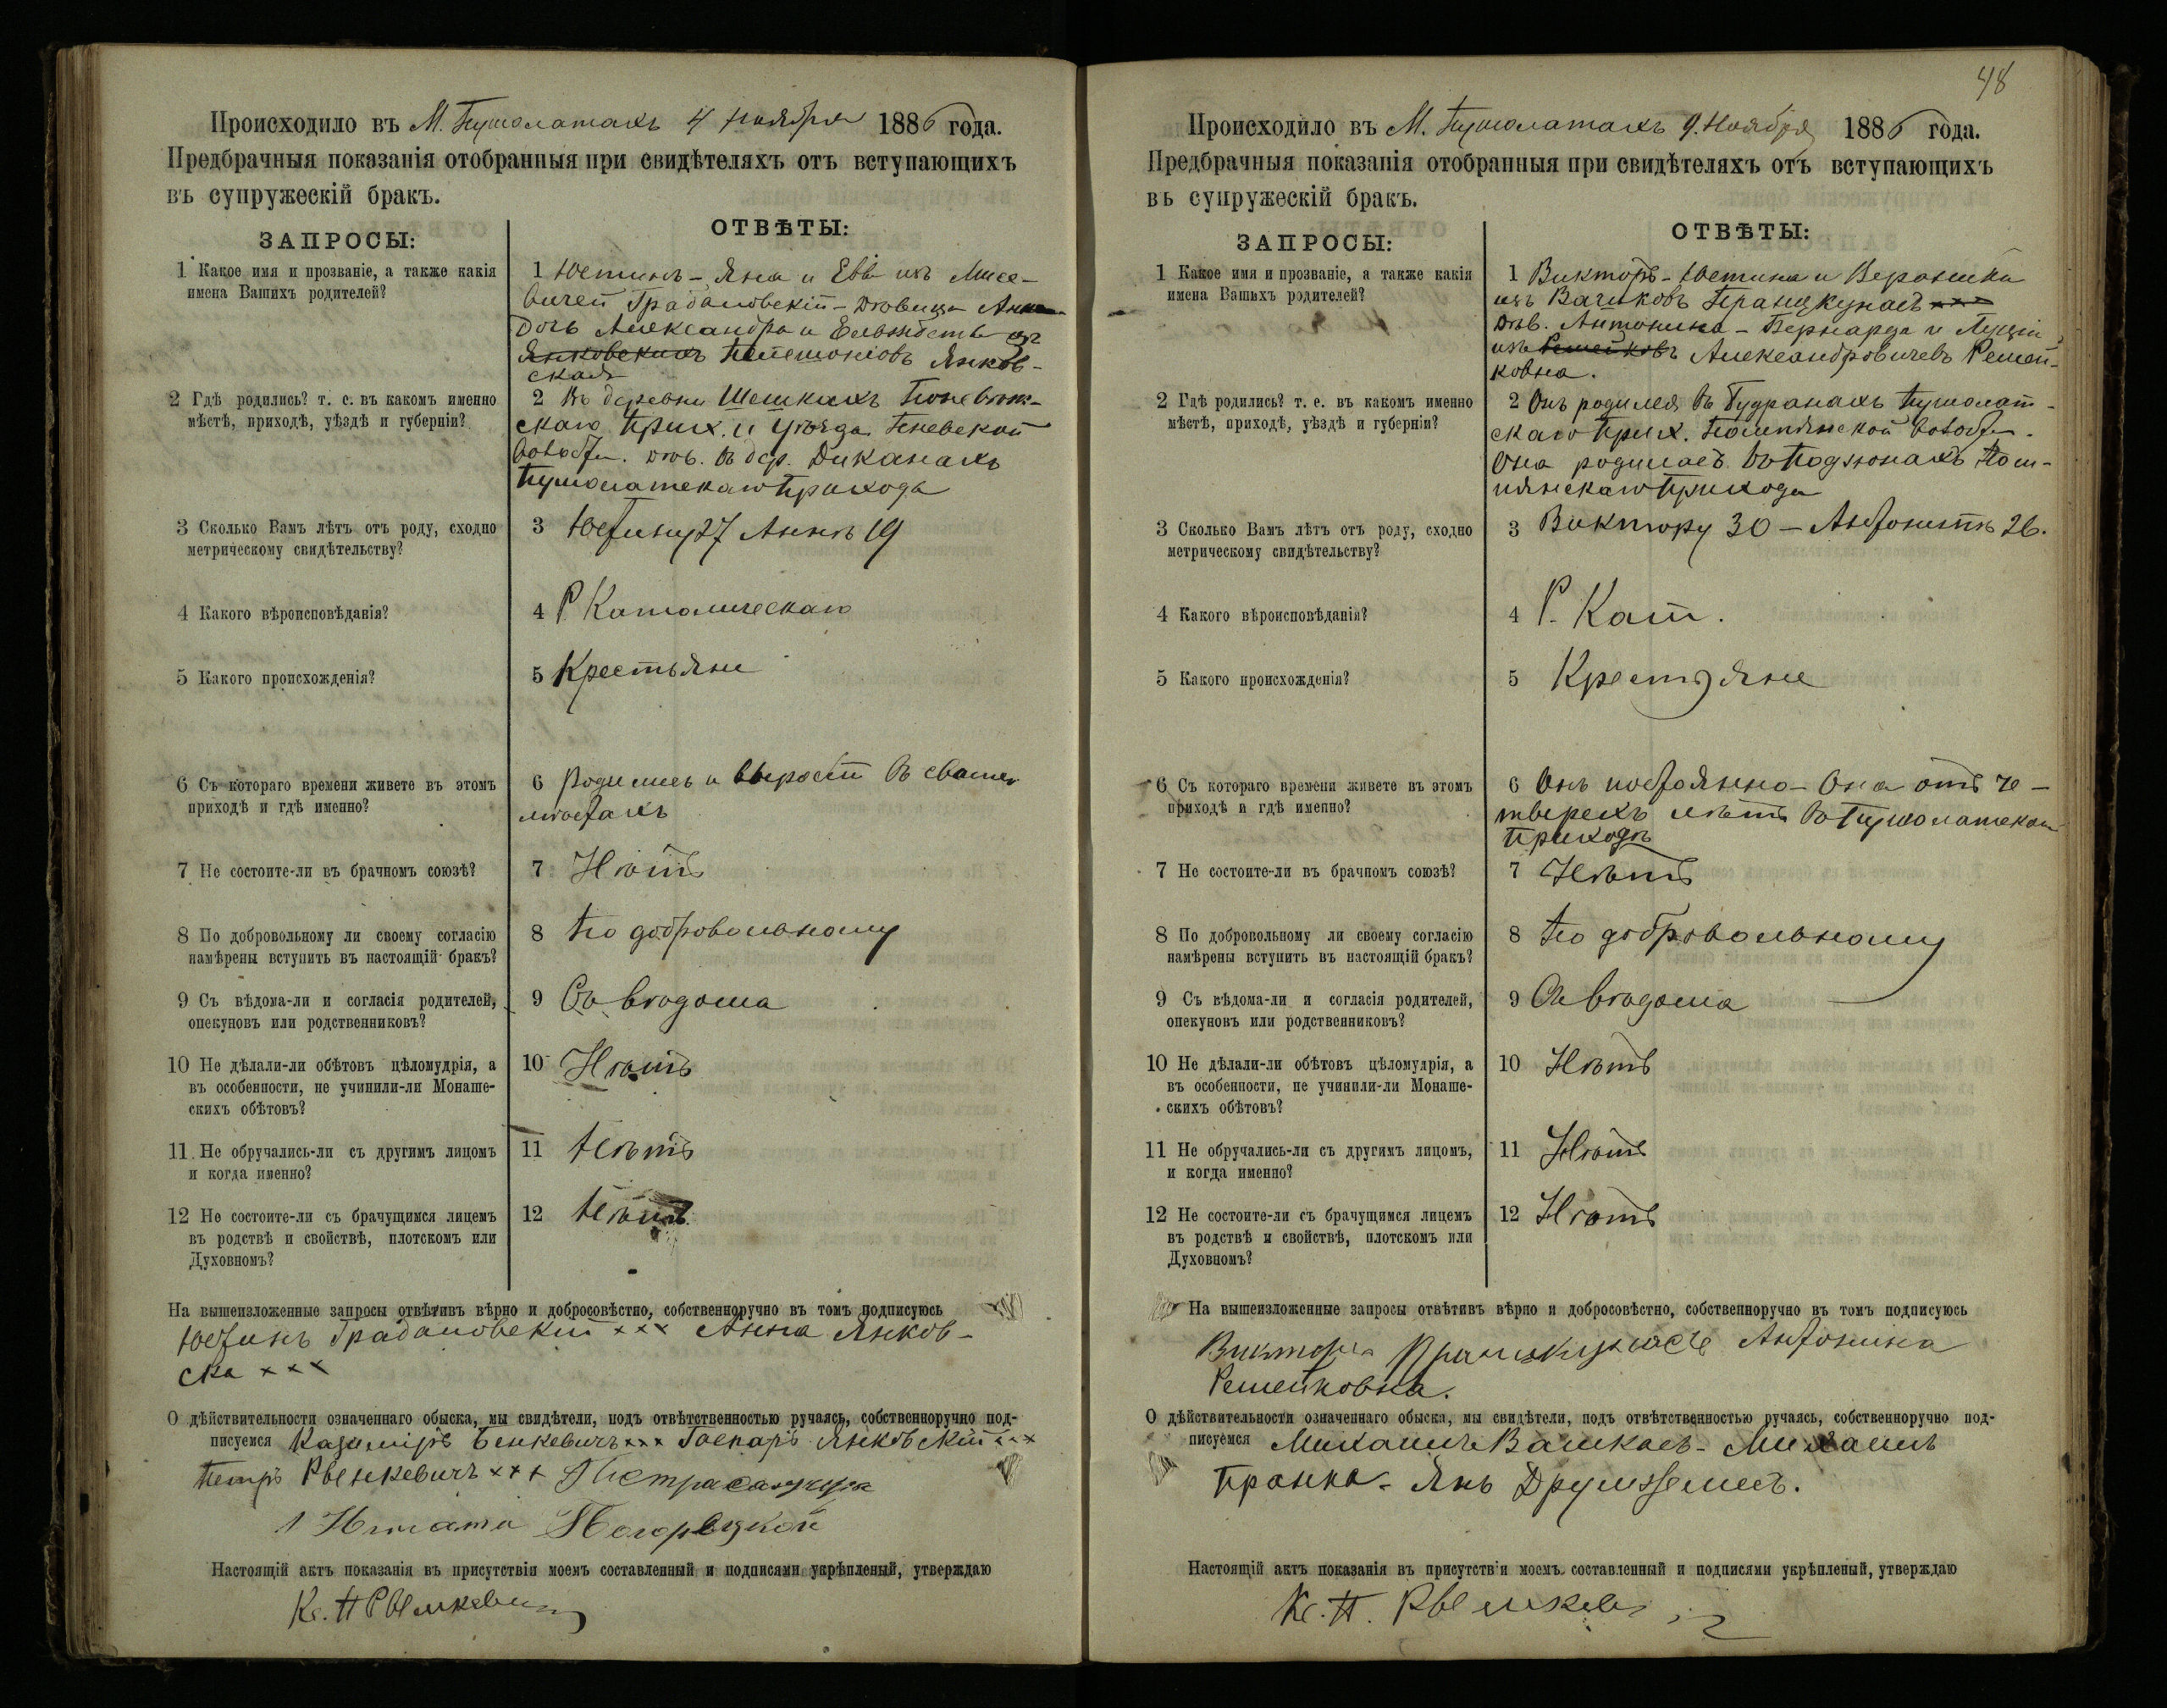 Происходило въ М. Пушолатахъ 4 Ноября 1886 года.
Предбрачныя показанія отобранныя при свидѣтеляхъ отъ вступающихъ
въ супружескій бракъ.
ЗАПРОСЫ:
ОТВѢТЫ:
1 Какое имя и прозваніе, а также какія
имена Вашихъ родителей?
1 Юстинъ - Яна и Евы изъ Мисе-
вичей Градановскій - Дѣвица Анна
Дочь Александра и Елжбеты изъ
Янковскихъ Янков-
ская
2 Гдѣ родились? т. е. въ какомъ именно
мѣстѣ, приходѣ, уѣздѣ и губерніи?
2 Въ деревни Шешкахъ Поневѣж-
скаго Прих. и уѣзда Ковенской
волости. дѣв. въ дер. Диканахъ
Пушолатскаго Прихода
3 Сколько Вамъ лѣтъ отъ роду, сходно
метрическому свидѣтельству?
3 Юстину 27 Аннѣ 19
4 Какого вѣроисповѣданія?
4 Р Католическаго
5 Какого происхожденія?
5 Крестьяне
6 Съ котораго времени живете въ этомъ
приходѣ и гдѣ именно?
6 Родились и въ своихъ
мѣстахъ
7 Не состоите-ли въ брачномъ союзѣ?
7 Нѣтъ
8 По добровольному ли своему согласію
намѣрены вступить въ настоящій бракъ?
8 По добровольному
9 Съ вѣдома-ли и согласія родителей,
опекуновъ или родственниковъ?
9 Съ вѣдома
10 Не дѣлали-ли обѣтовъ цѣломудрія, а
въ особенности, не учинили-ли Монаше-
скихъ обѣтовъ?
10 Нѣтъ
11 Не обручались-ли съ другимъ лицомъ
и когда именно?
11 Нѣтъ
12 Не состоите-ли съ брачущимся лицемъ
въ родствѣ и свойствѣ, плотскомъ или
Духовномъ?
12 Нѣтъ
На вышеизложенные запросы отвѣтивъ вѣрно и добросовѣстно, собственноручно въ томъ подписуюсь
Юстинъ Градановскій ××× Анна Янков-
ска ×××
О дѣйствительности означеннаго обыска, мы свидѣтели, подъ отвѣтственностью ручаясь, собственноручно под-
писуемся Казимиръ Бенкевичъ ××× Гаспаръ Янковскій ×××
Петръ Рвенкевичъ ×××
Настоящій актъ показанія въ присутствіи моемъ составленный и подписями укрѣпленый, утверждаю
Кс. П
48
Происходило въ М. Пушолатахъ 9. Ноября 1886 года.
Предбрачныя показанія отобранныя при свидѣтеляхъ отъ вступающихъ
въ супружескій бракъ.
ЗАПРОСЫ:
ОТВѢТЫ:
1 Какое имя и прозваніе, а также какія
имена Вашихъ родителей?
1 Викторъ - Юстина и Вероники
изъ Пранцкунасъ
Дѣв. Антонина - Бернарда и Луціи
изъ Александровичевъ Ремей-
ковна.
2 Гдѣ родились? т. е. въ какомъ именно
мѣстѣ, приходѣ, уѣздѣ и губерніи?
2 Онъ родился въ Гудранахъ Пушолат-
скаго Прих. волости.
Она родилась въ
Прихода
3 Сколько Вамъ лѣтъ отъ роду, сходно
метрическому свидѣтельству?
3 Виктору 30 - Антонинѣ 26.
4 Какого вѣроисповѣданія?
4 Р. Кат.
5 Какого происхожденія?
5 Крестьяне
6 Съ котораго времени живете въ этомъ
приходѣ и гдѣ именно?
6 Онъ постоянно - Она отъ че-
тверехъ лѣтъ въ Пушолатском
Приходѣ
7 Не состоите-ли въ брачномъ союзѣ?
7 Нѣтъ
8 По добровольному ли своему согласію
намѣрены вступить въ настоящій бракъ?
8 По добровольному
9 Съ вѣдома-ли и согласія родителей,
опекуновъ или родственниковъ?
9 Съ вѣдома
10 Не дѣлали-ли обѣтовъ цѣломудрія, а
въ особенности, не учинили-ли Монаше-
скихъ обѣтовъ?
10 Нѣтъ
11 Не обручались-ли съ другимъ лицомъ,
и когда именно?
11 Нѣтъ
12 Не состоите-ли съ брачущимся лицемъ
въ родствѣ и свойствѣ, плотскомъ или
Духовномъ?
12 Нѣтъ
На вышеизложенные запросы отвѣтивъ вѣрно и добросовѣстно, собственноручно въ томъ подписуюсь
Антонина
Ремейковна.
О дѣйствительности означеннаго обыска, мы свидѣтели, подъ отвѣтственностью ручаясь, собственноручно под-
писуемся Михаилъ Вашкасъ - Михаилъ
Пранка - Янъ
Настоящій актъ показанія въ присутствіи моемъ составленный и подписями укрѣпленый, утверждаю
Кс. П.